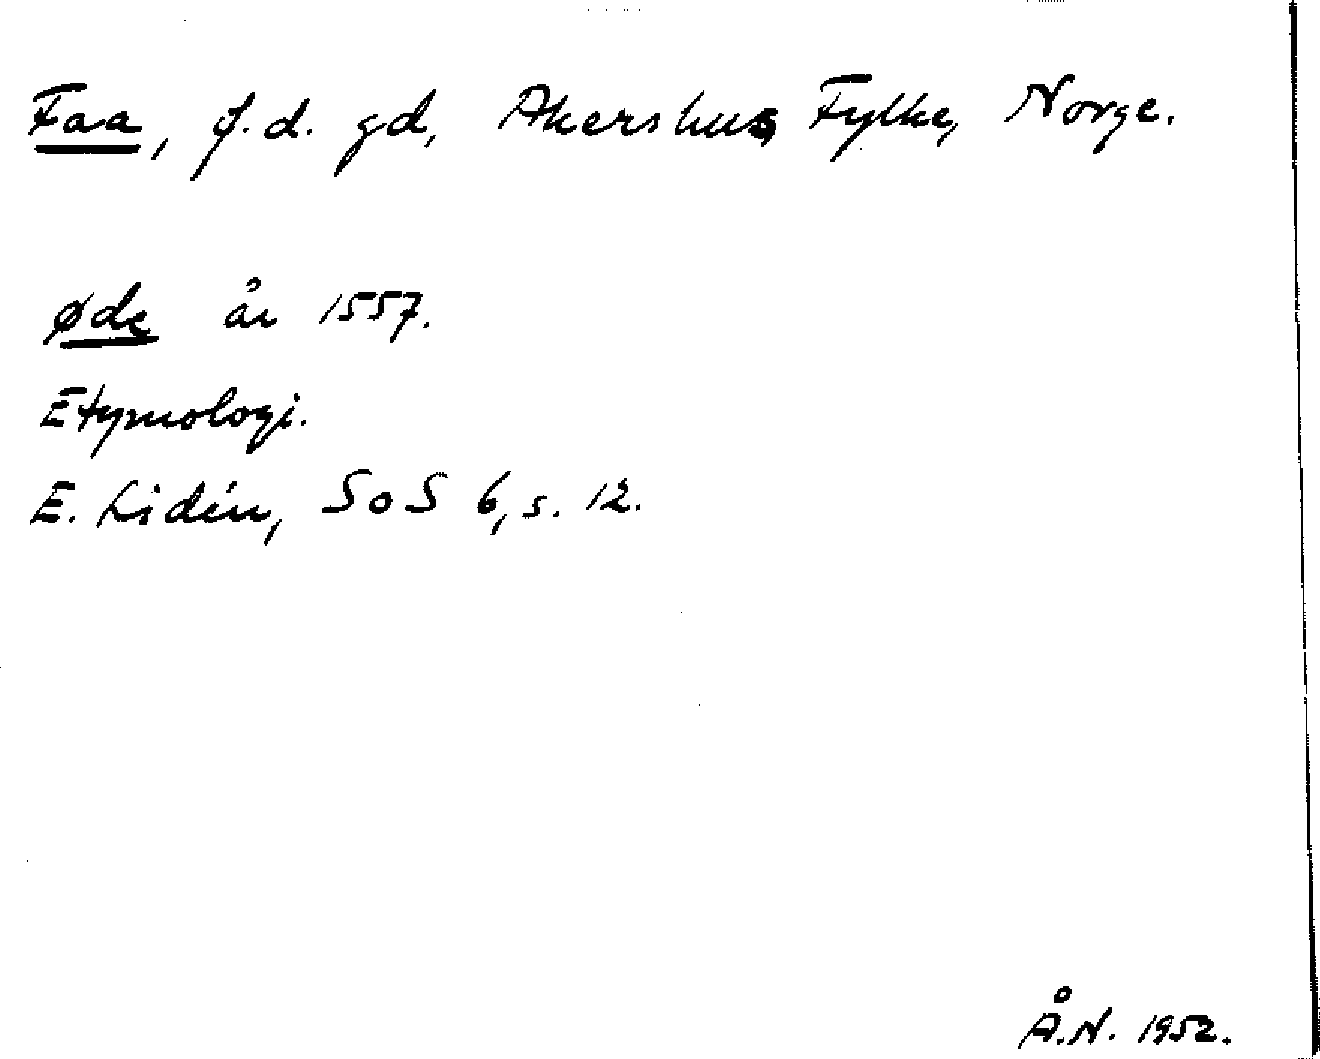 Faa, f.d. gd, Akershus Fylke, Norge.
øde år 1557.
Etymologi.
E. Lidén, SoS 6, s. 12.
Å.N. 1952.